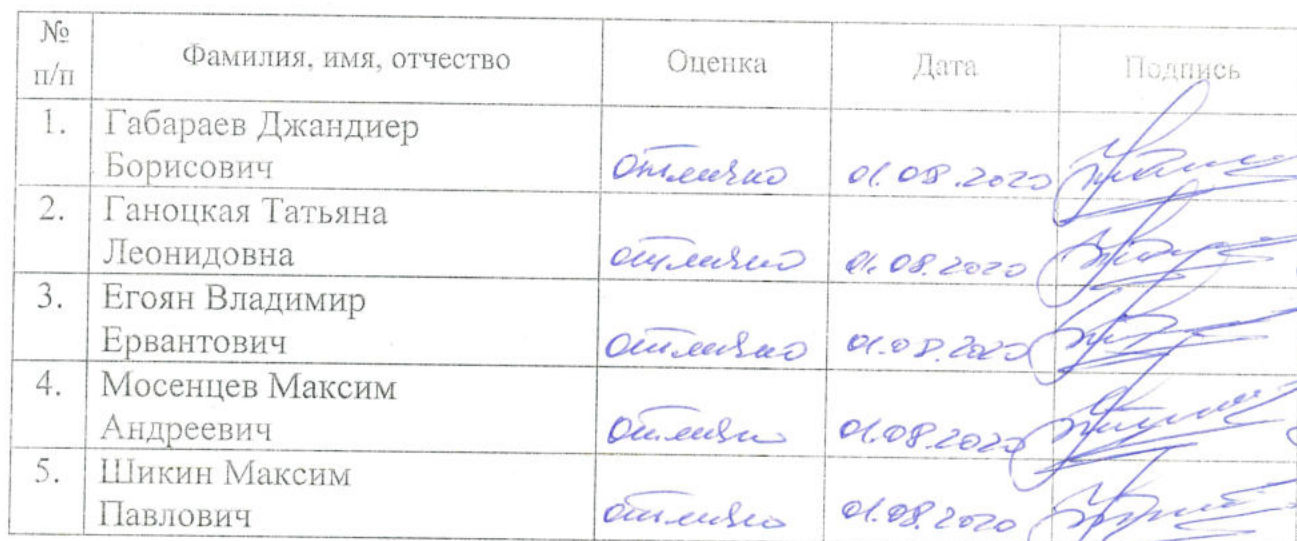 № п/п Фамилия, имя, отчество Оценка Дата Подпись
1. Габараев Джандиер
Борисович отлично 01.08.2020
2. Ганоцкая Татьяна
Леонидовна отлично 01.08.2020
3. Егоян Владимир
Ервантович отлично 01.08.2020
4. Мосенцев Максим
Андреевич отлично 01.08.2020
5. Шикин Максим
Павлович отлично 01.08.2020